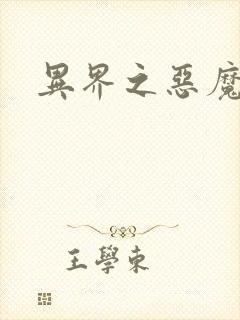 異界之惡魔
王學東